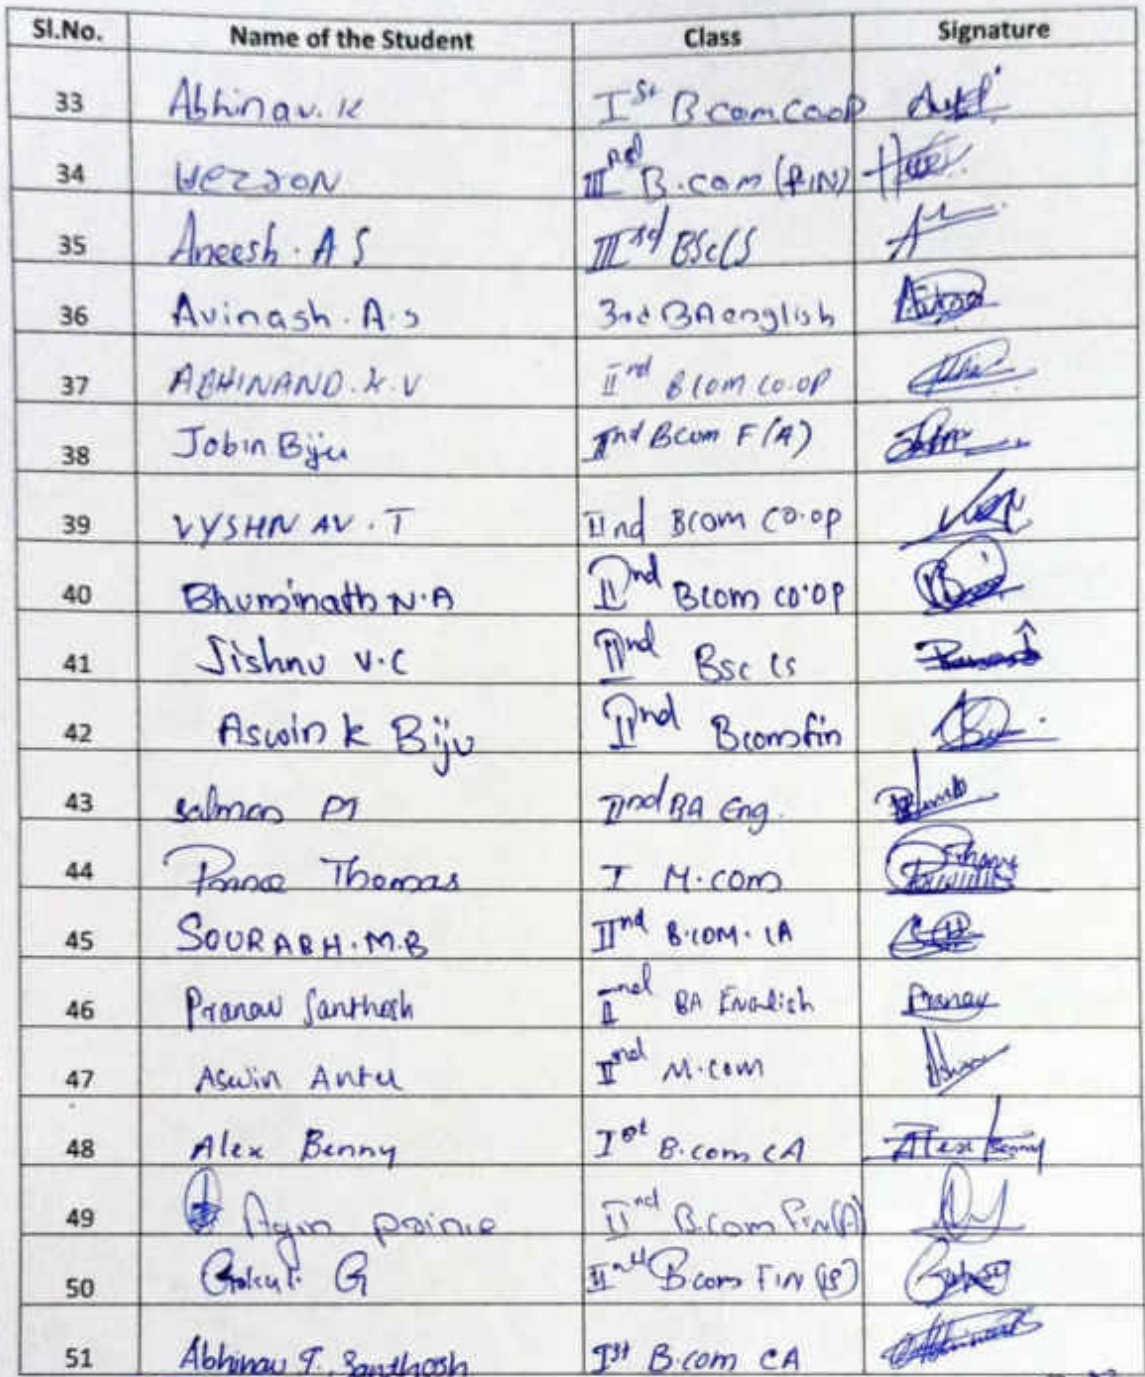 Sl.No. Name of the Student Class Signature
33 Abhinav.K Ist B.com Coop
34 HEZRON IIIrd B.com (FIN)
35 Aneesh.A S IIIrd BSc CS
36 Avinash.A.s 3rd BA english
37 ABHINAND.K.V IInd B com co.op
38 Jobin Biju IInd Bcom F(A)
39 VYSHNAV.T IInd Bcom co.op
40 Bhuminath N.A IInd Bcom co.op
41 Jishnu V.C IInd Bsc cs
42 Aswin k Biju IInd Bcom fin
43 Salman IInd BA Eng.
44 Prince Thomas I M.com
45 SOURABH.M.B IInd B.COM.CA
46 Pranav Santhosh IInd BA English Pranav
47 Aswin IInd M.com
48 Alex Benny Ist B.com CA Alex Benny
49 Agin prince IInd B.com Fin(A)
50 Gokul. G IInd B com FIN
51 Abhinav T. Santhosh Ist B.com CA